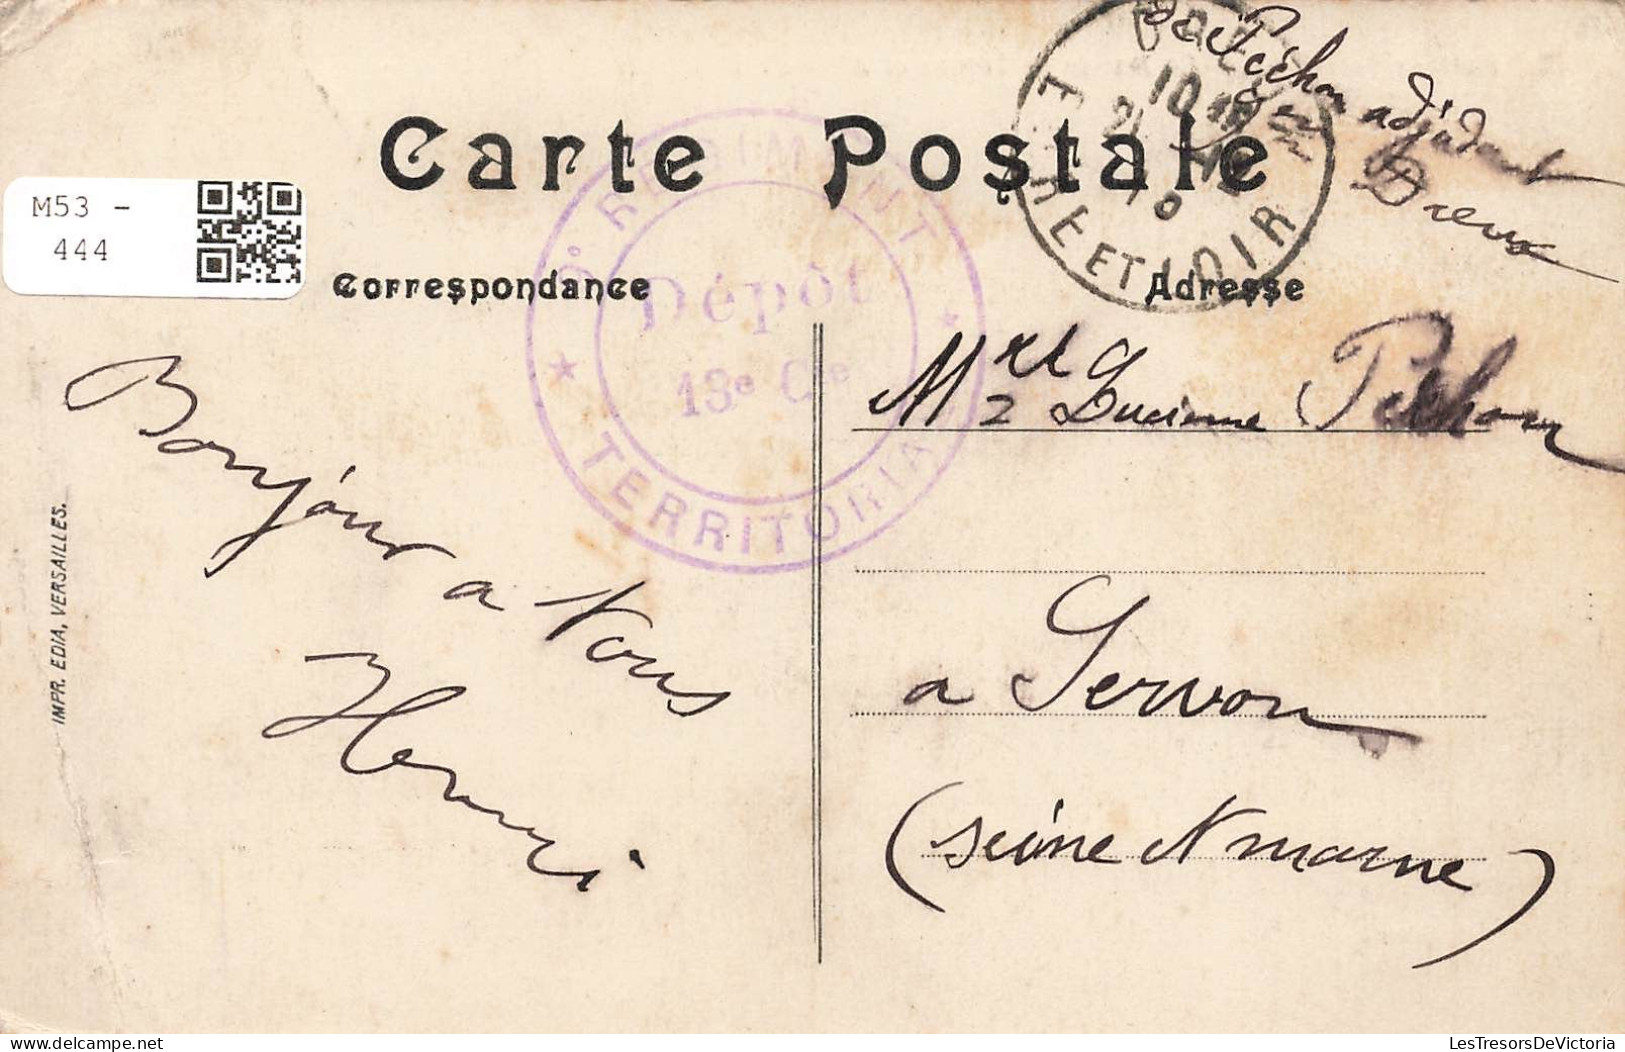 Péchon adjudant
Dreux
Carte Postale
M53 -
444
Correspondance
Adresse
RÉGIMENT
TERRITORIAL
Dépôt
13e Cie
EURE ET LOIR
10
Melle Lucienne Péchon
Bonjour a vous
Henri
a Servon
(seine et marne)
IMPR. EDIA, VERSAILLES.
delcampe.net
LesTresorsDeVictoria